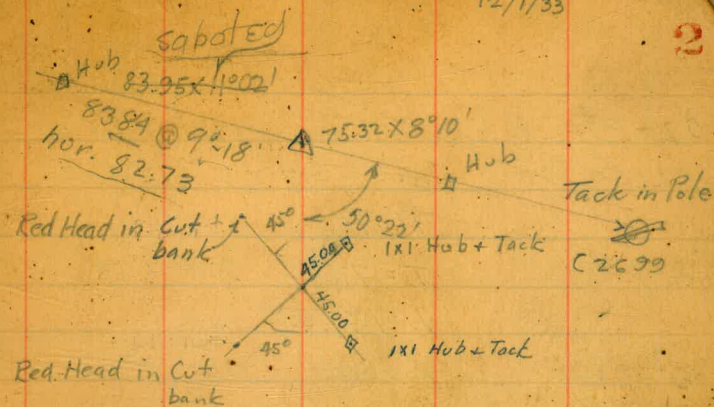 12/1/33
2
saboted
Hub
83.95 X 11°02'
8384 @ 9°-18'
hor. 82.73
75.32 X 8°10'
Hub
Tack in Pole
C2699
50°22'
Red Head in Cut
bank
45°
45.04
1x1 Hub + Tack
45.00
45°
1x1 Hub + Tack
Red Head in Cut
bank